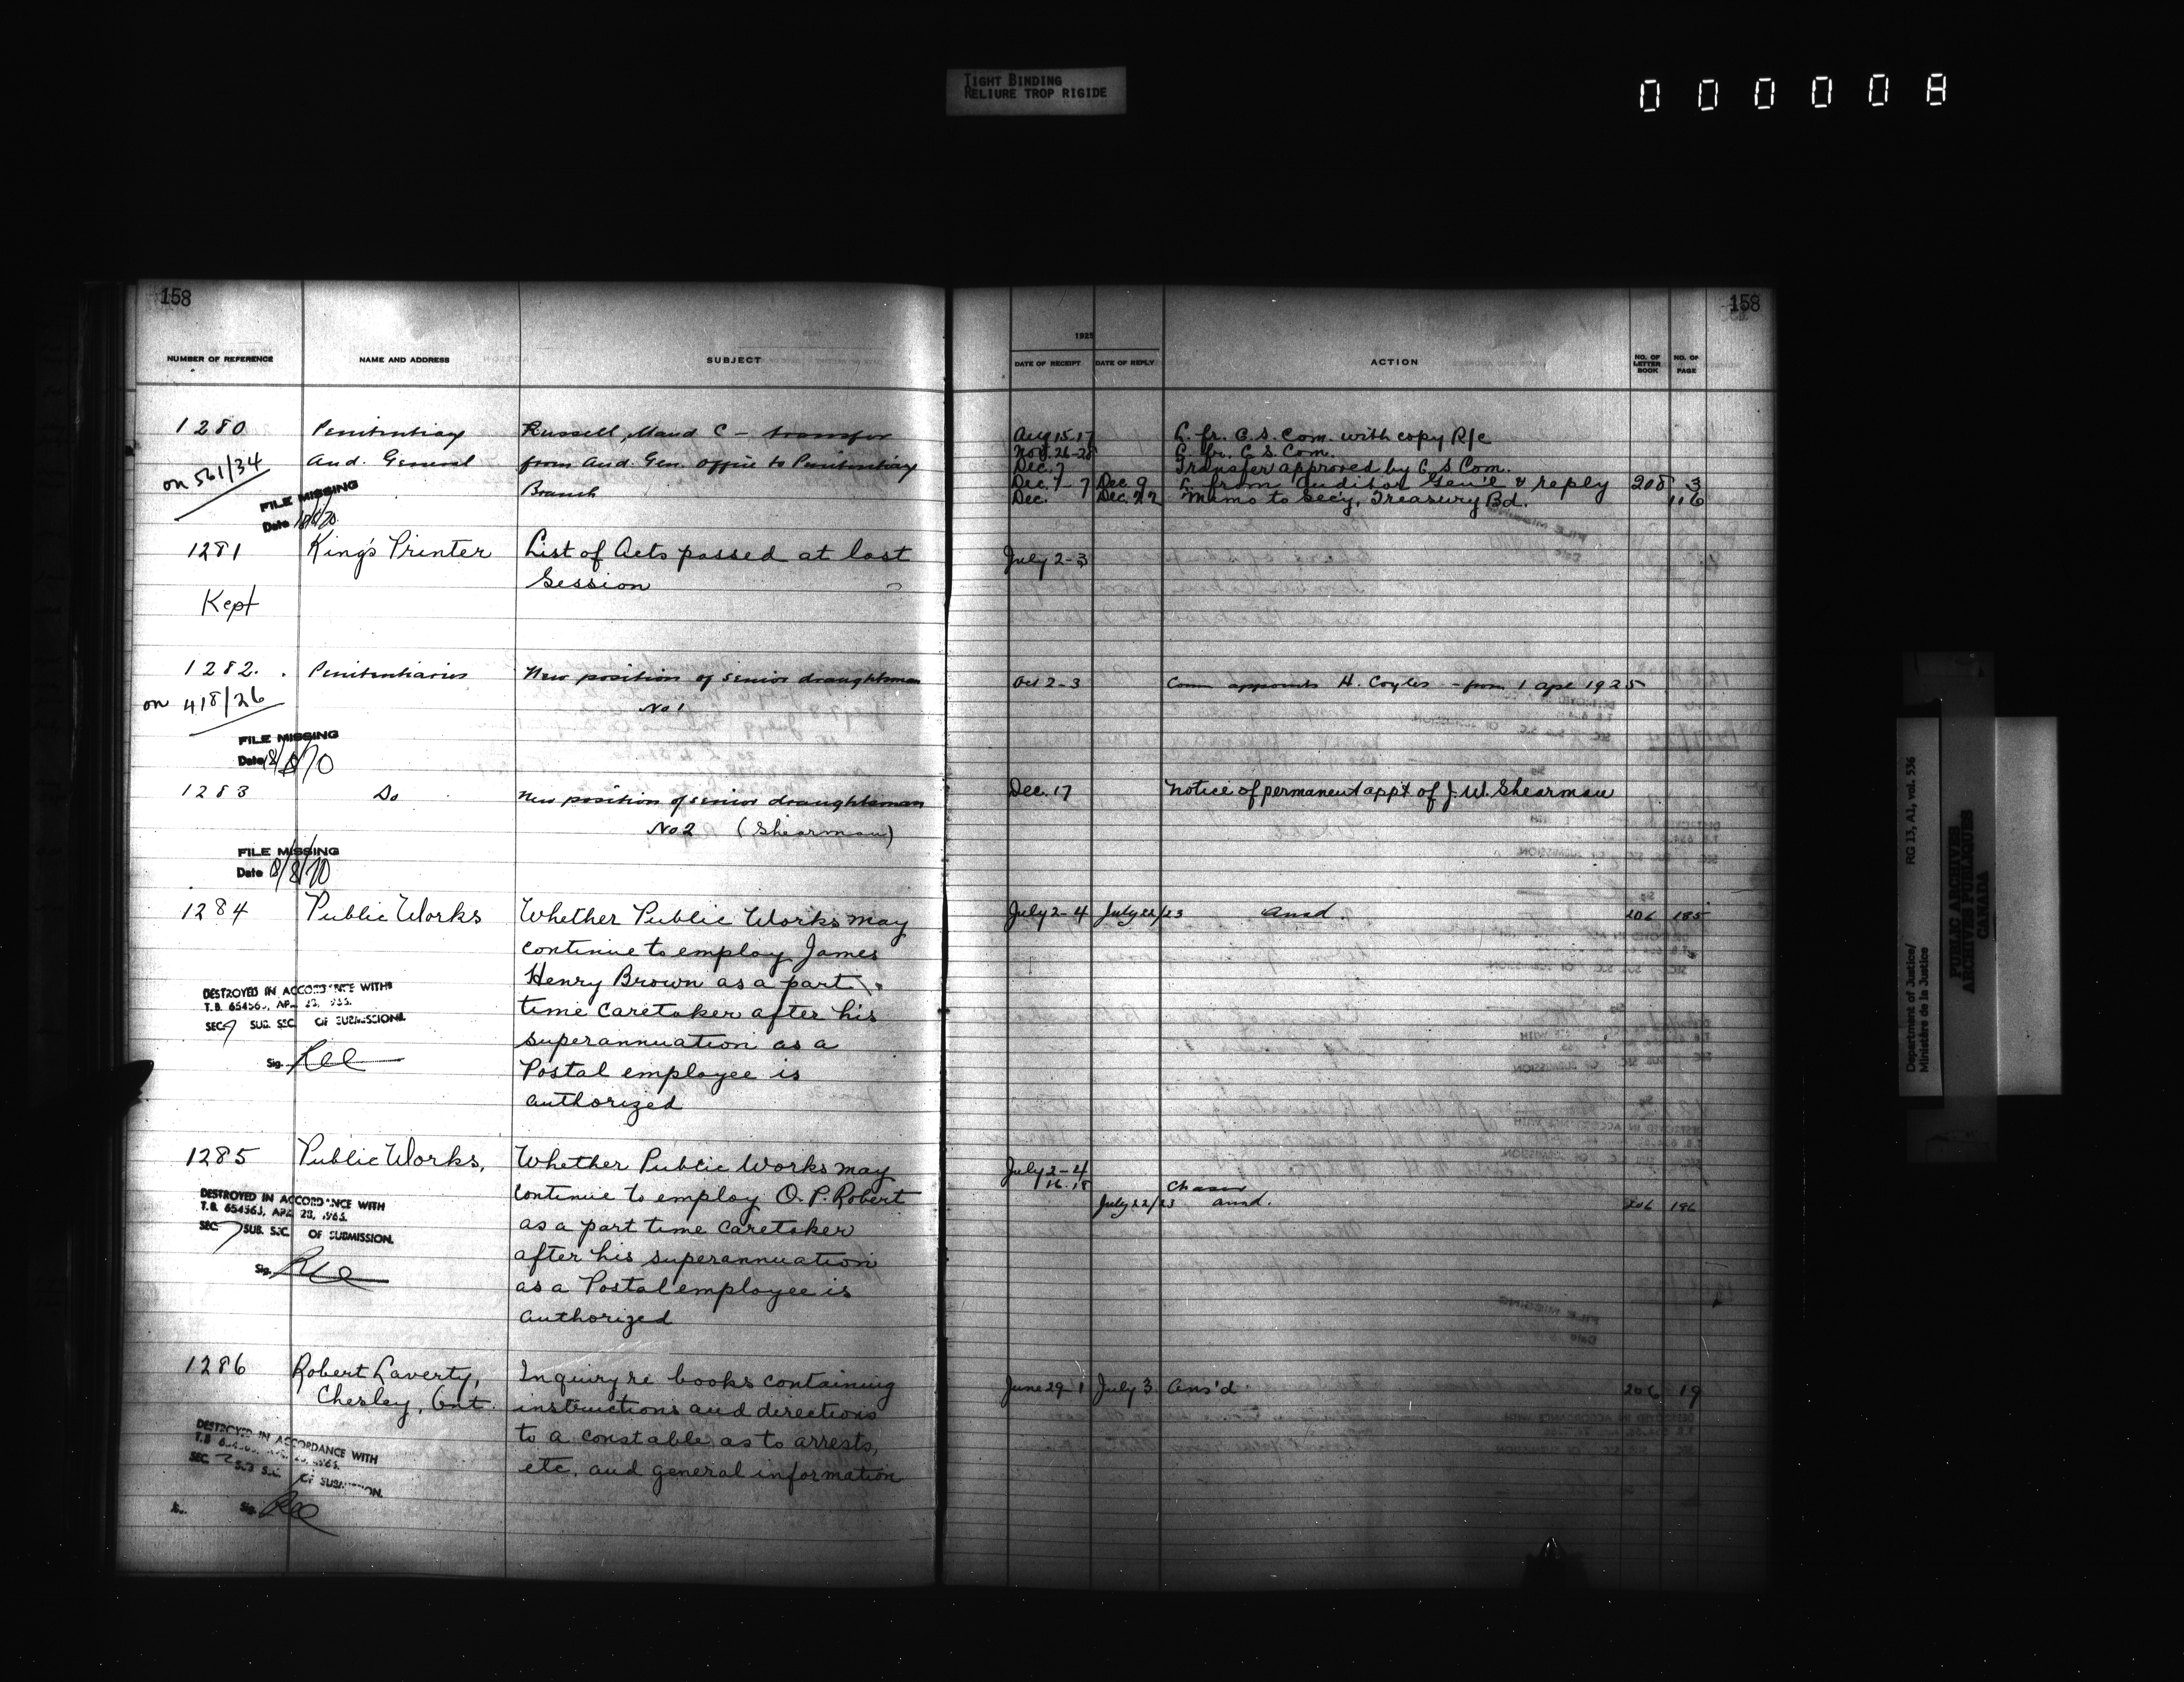 TIGHT BINDING
RELIURE TROP RIGIDE
000008
158
NUMBER OF REFERENCE
NAME AND ADDRESS
SUBJECT
1280 Penitentiary Russell, Maud C - transfer
on 561/34 Aud. General from Aud. Gen. Office to Penitentiary
Branch
FILE MISSING
Date
1281 King's Printer List of Acts passed at last
Session
Kept
1282. Penitentiaries New position of senior draughtsman
on 418/26 No 1
FILE MISSING
Date 18/8/70
1283 Do New position of senior draughtsman
No 2 (Shearman)
FILE MISSING
Date 18/8/70
1284 Public Works Whether Public Works may
continue to employ James
Henry Brown as a part
time caretaker after his
superannuation as a
Postal employee is
authorized
DESTROYED IN ACCORDANCE WITH
T.B. 654563, APR. 28, 1965.
SEC. 7 SUB. SEC. OF SUBMISSION.
Sig.
1285 Public Works, Whether Public Works may
continue to employ O. P. Robert
as a part time caretaker
after his superannuation
as a Postal employee is
authorized
DESTROYED IN ACCORDANCE WITH
T.B. 654563, APR. 28, 1965.
SEC. 7 SUB. SEC. OF SUBMISSION.
Sig.
1286 Robert Laverty, Inquiry re books containing
Chesley, Ont. instructions and directions
to a constable as to arrests,
etc. and general information
DESTROYED IN ACCORDANCE WITH
T.B. 654563, APR. 28, 1965.
SEC. 7 SUB. SEC. OF SUBMISSION.
Sig.
158
1925
DATE OF RECEIPT
DATE OF REPLY
ACTION
NO. OF LETTER BOOK
NO. OF PAGE
Aug 15-17 L. fr. C. S. Com. with copy R/c
Nov. 26-28 L. fr. C. S. Com.
Dec. 7 Transfer approved by C. S. Com.
Dec. 7-7 Dec. 9 L. from Auditor Gen'l & reply 208 3
Dec. Dec. 22 Memo to Sec'y, Treasury Bd. 116
July 2-3
Oct 2-3 Comm appoints H. Coyles - from 1 Apl 1925
Dec. 17 Notice of permanent app't of J. W. Shearman
July 2-4 July 22/23 ansd. 206 185
July 2-4
16.18 Chaser
July 22/23 ansd. 206 186
June 29-1 July 3 Ans'd. 206 19
Department of Justice/
Ministère de la Justice
RG 13, A1, vol. 536
PUBLIC ARCHIVES
ARCHIVES PUBLIQUES
CANADA